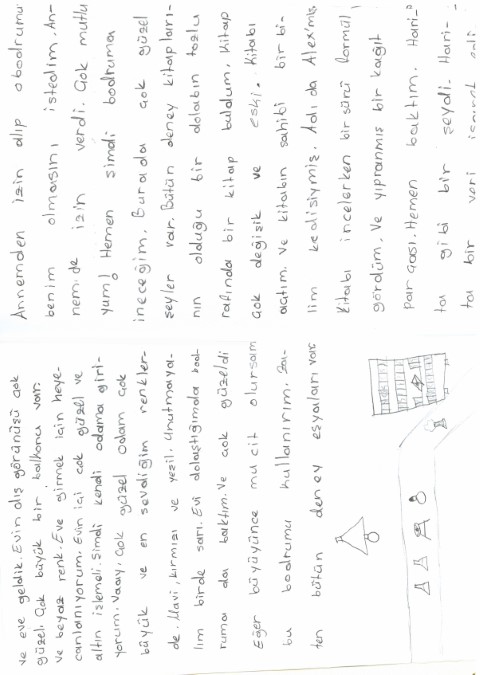 ve eve geldik. Evin dış görünüşü çok
güzel. Çok büyük bir balkonu var.
ve beyaz renk. Eve girmek için heye-
canlanıyorum. Evin içi çok güzel ve
altın işlemeli. Şimdi kendi odama giri-
yorum. Vaay, çok güzel odam çok
büyük ve en sevdiğim renkler-
de. Mavi, kırmızı ve yeşil. Unutmaya-
lım birde sarı. Evi dolaştığımda bod-
ruma da baktım. Ve çok güzeldi
Eğer büyüyünce mucit olursam
bu bodrumu kullanırım. Za-
ten bütün deney eşyaları var.
Annemden izin alıp o bodrumu
benim olmasını istedim. An-
nemde izin verdi. Çok mutlu
yum! Hemen şimdi bodruma
ineceğim. Burada çok güzel
şeyler var. Bütün deney kitapları-
nın olduğu bir dolabın tozlu
rafında bir kitap buldum. Kitap
çok değişik ve eski. Kitabı
açtım. Ve kitabın sahibi bir bi-
lim kedisiymiş. Adı da Alex'miş.
Kitabı incelerken bir sürü formül
gördüm. Ve yıpranmış bir kağıt
parçası. Hemen baktım. Hari-
ta gibi bir şeydi. Hari-
ta bir yeri